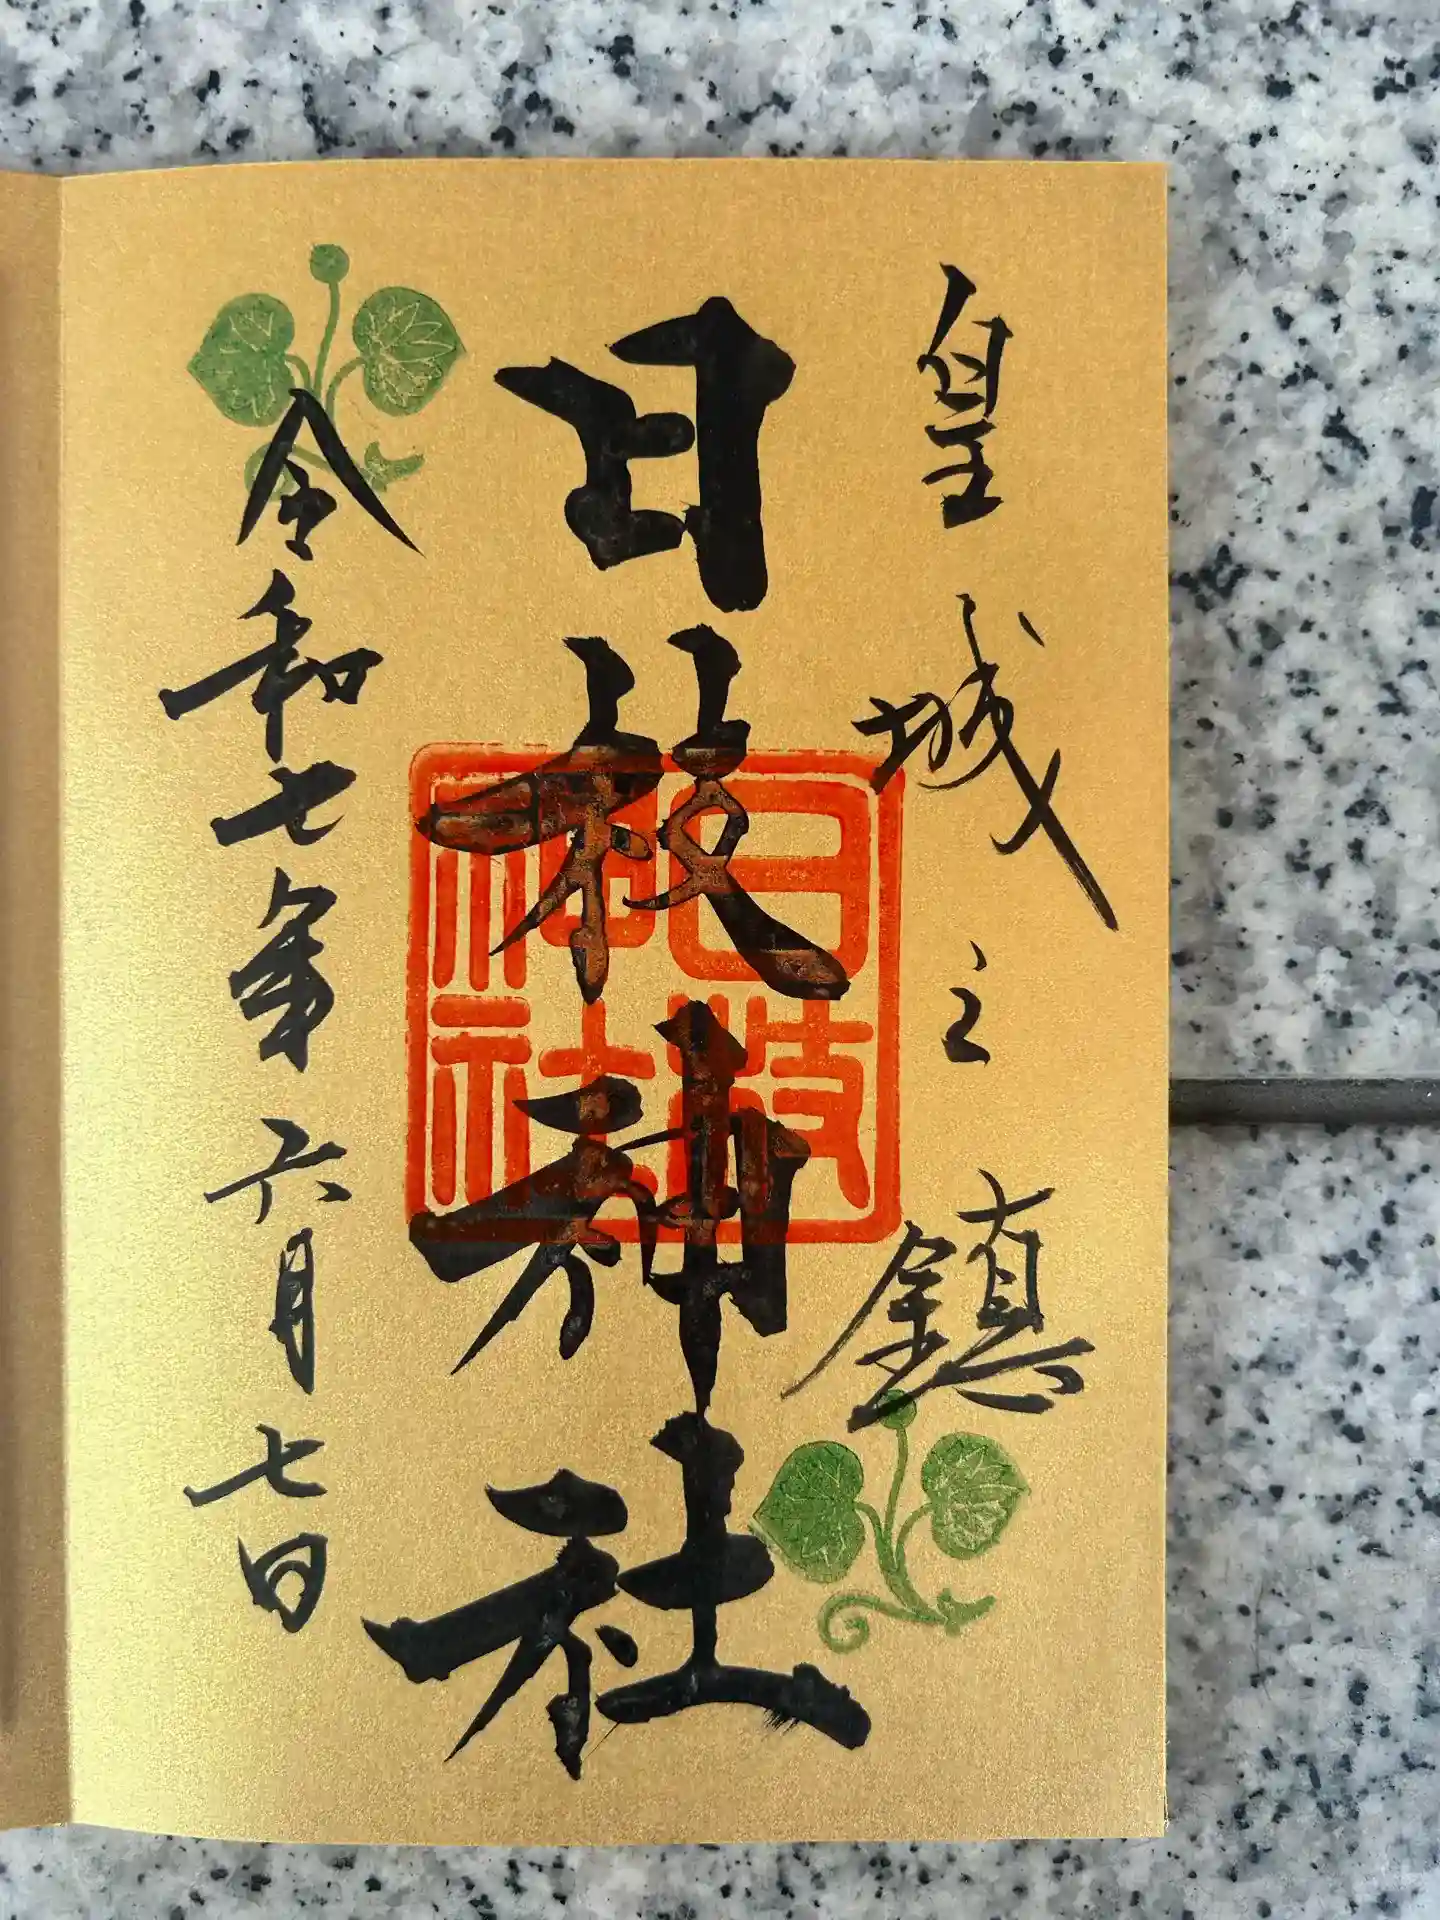 皇城之鎮
日枝神社
日枝神社
令和七年六月七日